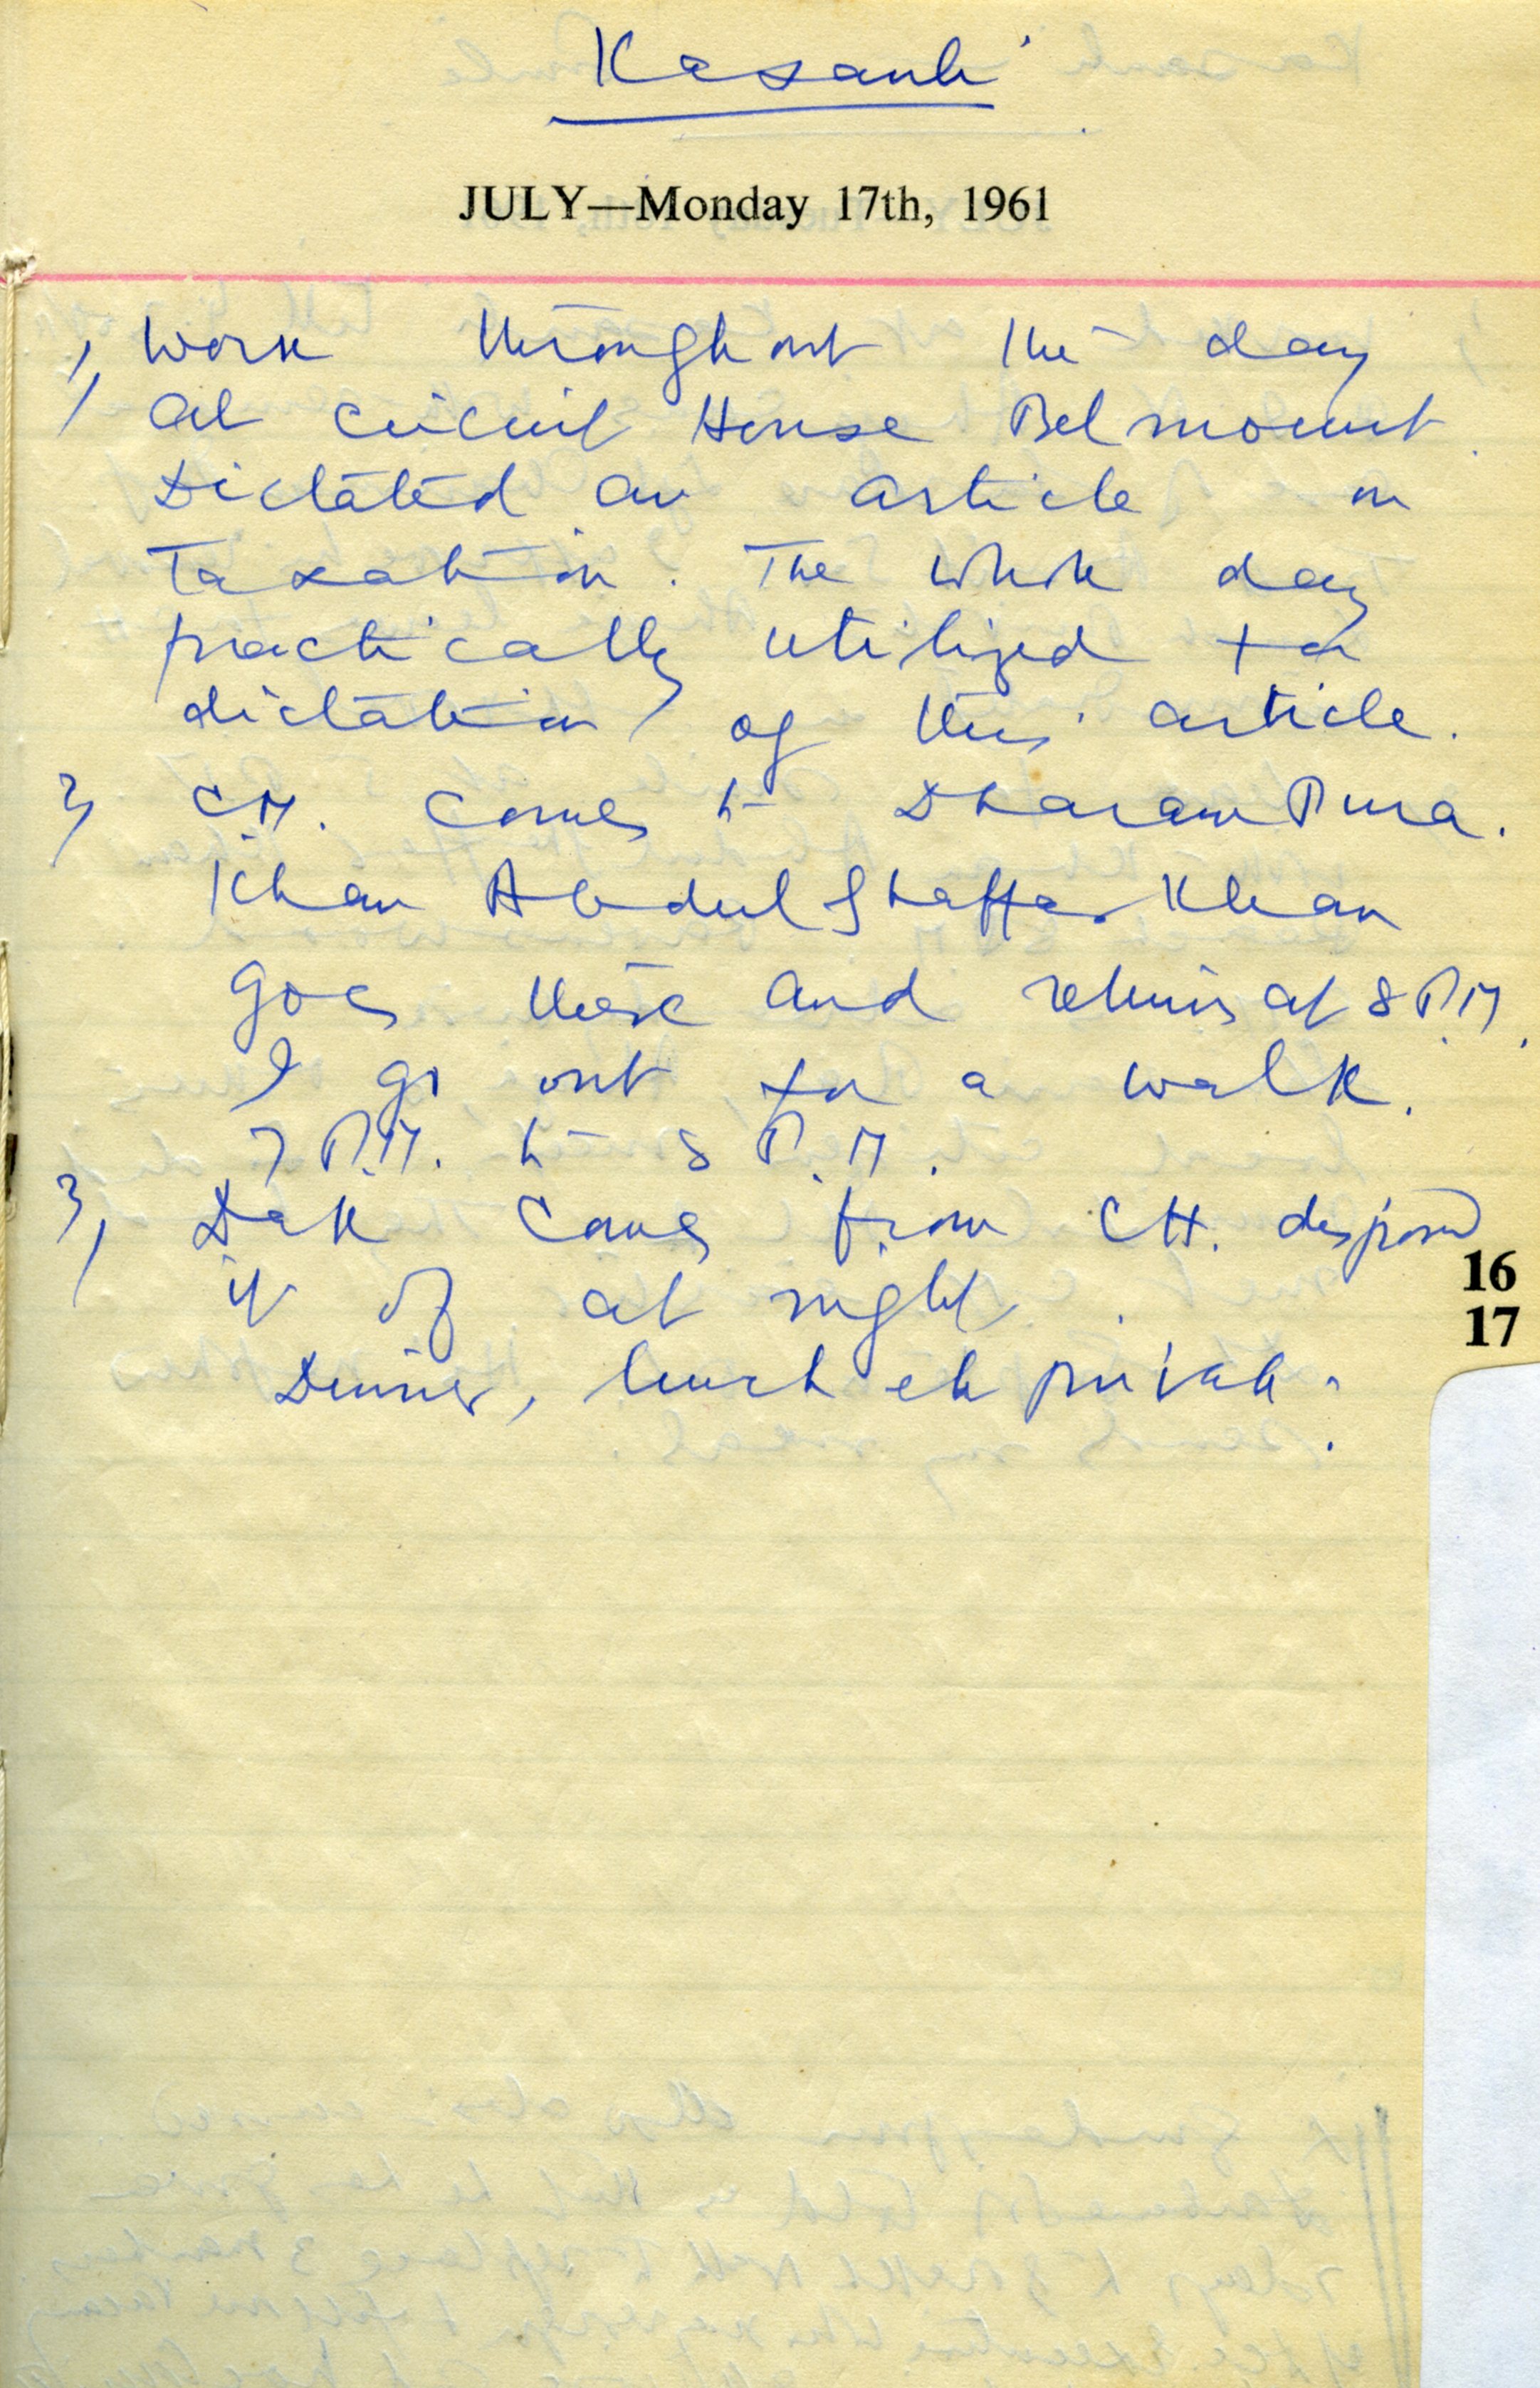 Kasauli
JULY—Monday 17th, 1961
1, Work throughout the day
at circuit House Belmount.
Dictated an article on
Taxation. The whole day
practically utilized for
dictation of this article.
2, C.M. comes to DharamPura.
Khan Abdul Ghaffar Khan
goes there and returns at 8 P.M.
I go out for a walk.
7 P.M. to 8 P.M.
3, Dak comes from CH. disposed
it of at night.
Dinner, lunch etc private.
16
17